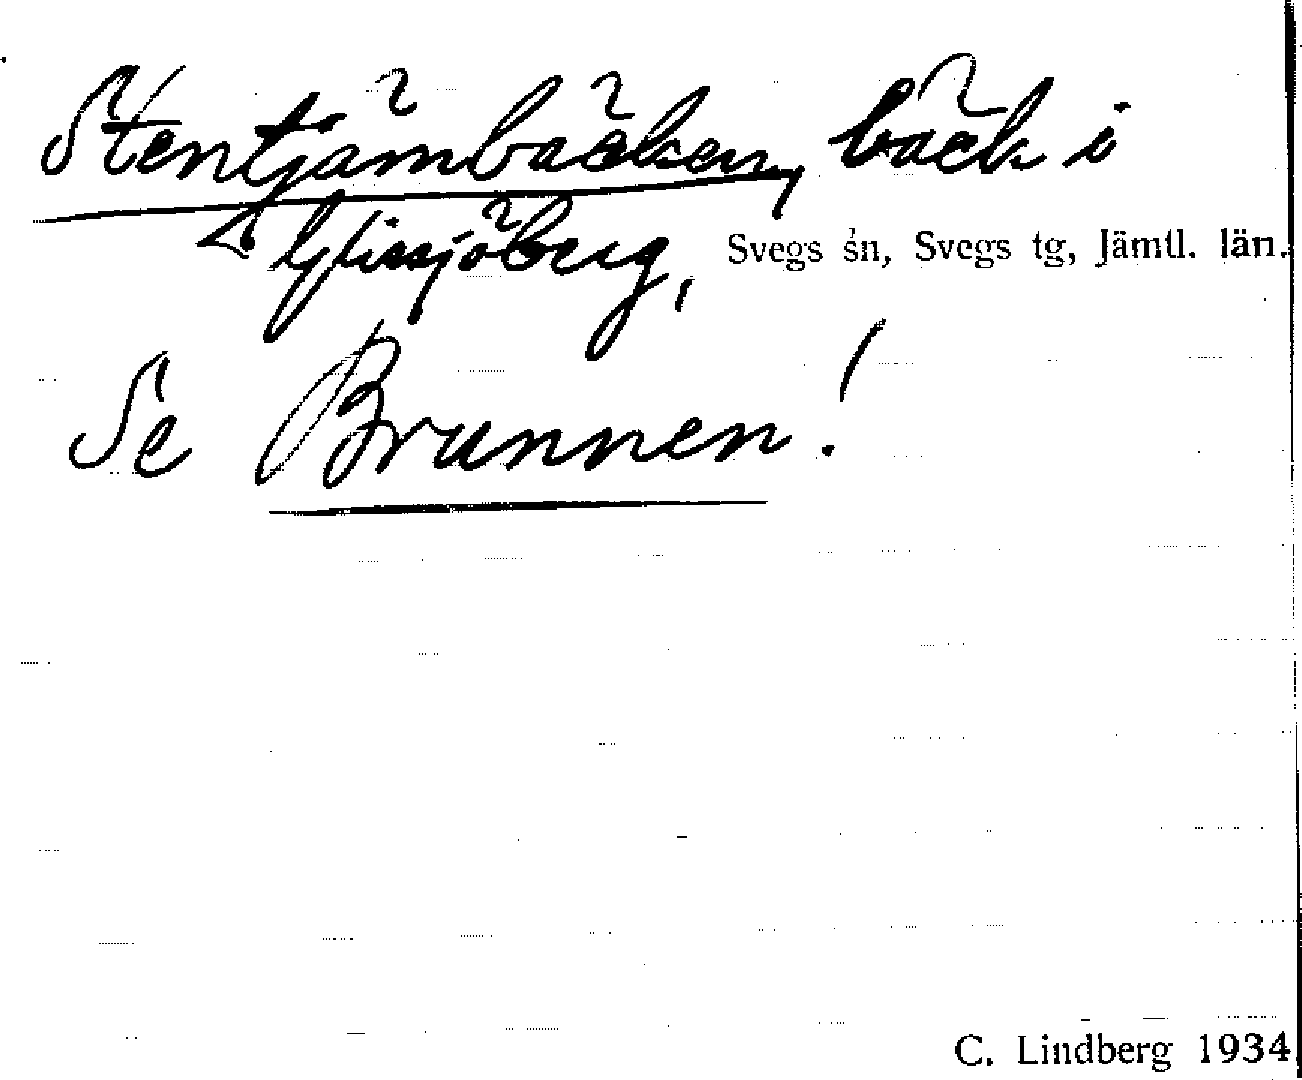 Stentjärnbäcken, bäck i
Glissjöberg, Svegs sn, Svegs tg, Jämtl. län.
Se Brunnen!
C. Lindberg 1934